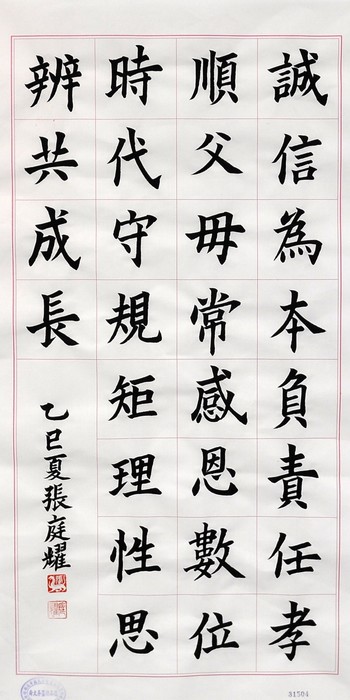 誠信為本負責任孝
順父毋常感恩數位
時代守規矩理性思
辨共成長
乙巳夏張庭耀
31504